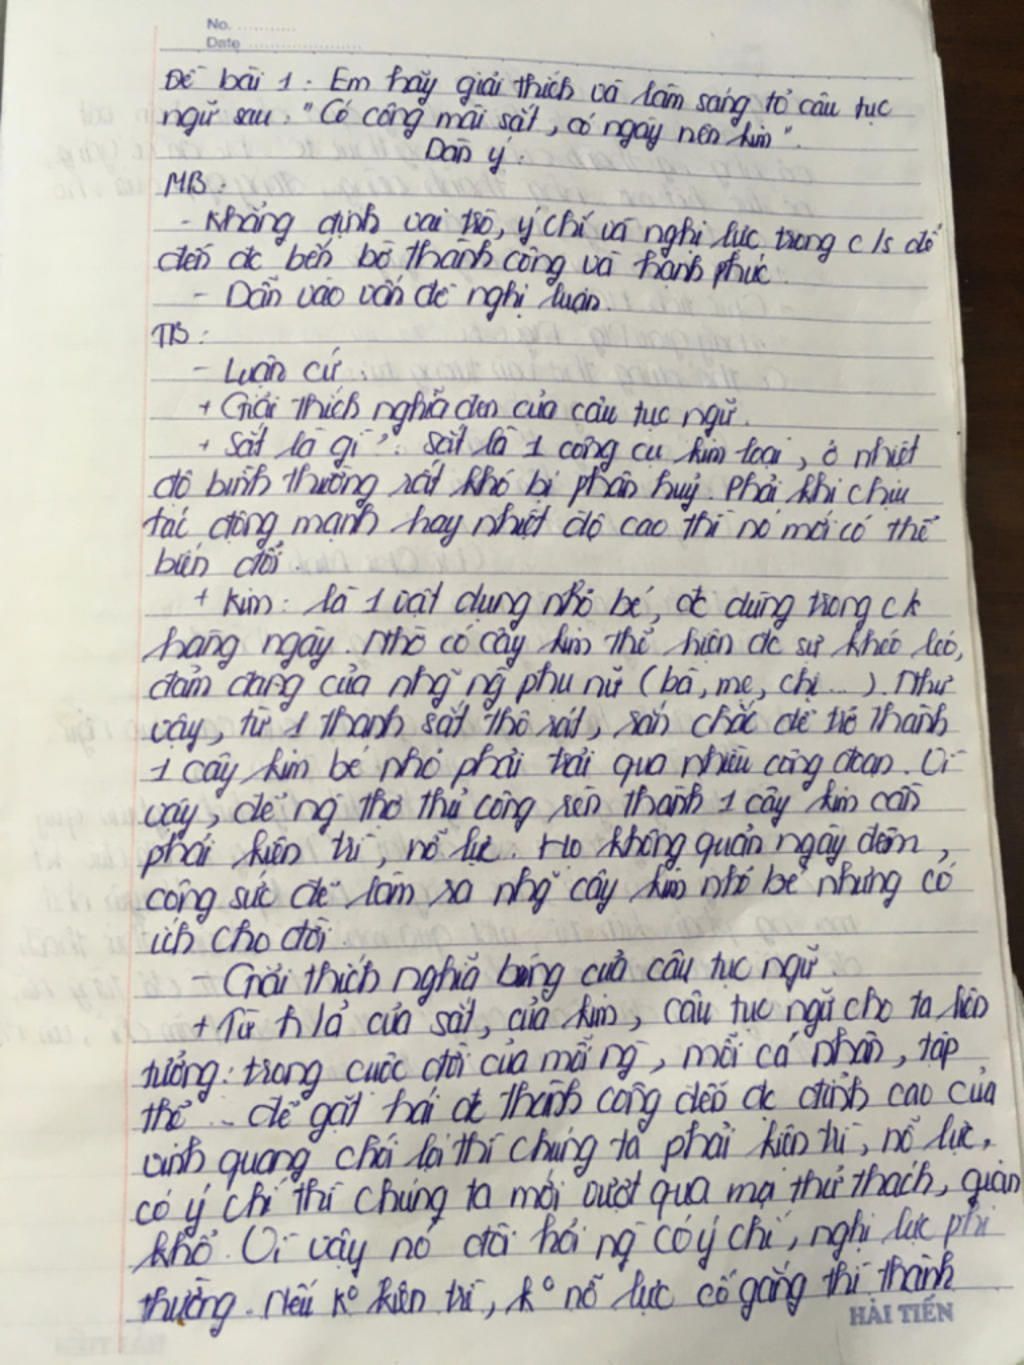 No. ............
Date ........................
Đề bài 1: Em hãy giải thích và làm sáng tỏ câu tục
ngữ sau: "Có công mài sắt, có ngày nên kim".
Dàn ý:
MB:
- Khẳng định vai trò, ý chí và nghị lực trong c/s để
đến đc bến bờ thành công và hạnh phúc.
- Dẫn vào vấn đề nghị luận.
TB:
- Luận cứ:
+ Giải thích nghĩa đen của câu tục ngữ.
+ Sắt là gì?: Sắt là 1 công cụ kim loại, ở nhiệt
độ bình thường rất khó bị phân huỷ. Phải khi chịu
tác động mạnh hay nhiệt độ cao thì nó mới có thể
biến đổi.
+ Kim: là 1 vật dụng nhỏ bé, đc dùng trong
hàng ngày. Nhờ có cây kim thể hiện đc sự khéo léo,
đảm đang của nhg̃ ng̀ phụ nữ (bà, mẹ, chị...). Như
vậy, từ 1 thanh sắt thô rát, rắn chắc để trở thành
1 cây kim bé nhỏ phải trải qua nhiều công đoạn. Vì
vậy, để ng̀ thợ thủ công rèn thành 1 cây kim cần
phải kiên trì, nỗ lực. Họ không quản ngày đêm,
công sức để làm ra nhg̃ cây kim nhỏ bé nhưng có
ích cho đời.
- Giải thích nghĩa bóng của câu tục ngữ.
+ Từ h/ả của sắt, của kim, câu tục ngữ cho ta liên
tưởng: trong cuộc đời của mỗi ng̀, mỗi cá nhân, tập
thể ... để gặt hái đc thành công đến đc đỉnh cao của
vinh quang chói lọi thì chúng ta phải kiên trì, nỗ lực,
có ý chí thì chúng ta mới vượt qua mọi thử thách, gian
khổ. Vì vậy nó đòi hỏi ng̀ có ý chí, nghị lực phi
thường. Nếu k° kiên trì, k° nỗ lực cố gắng thì thành
HẢI TIẾN